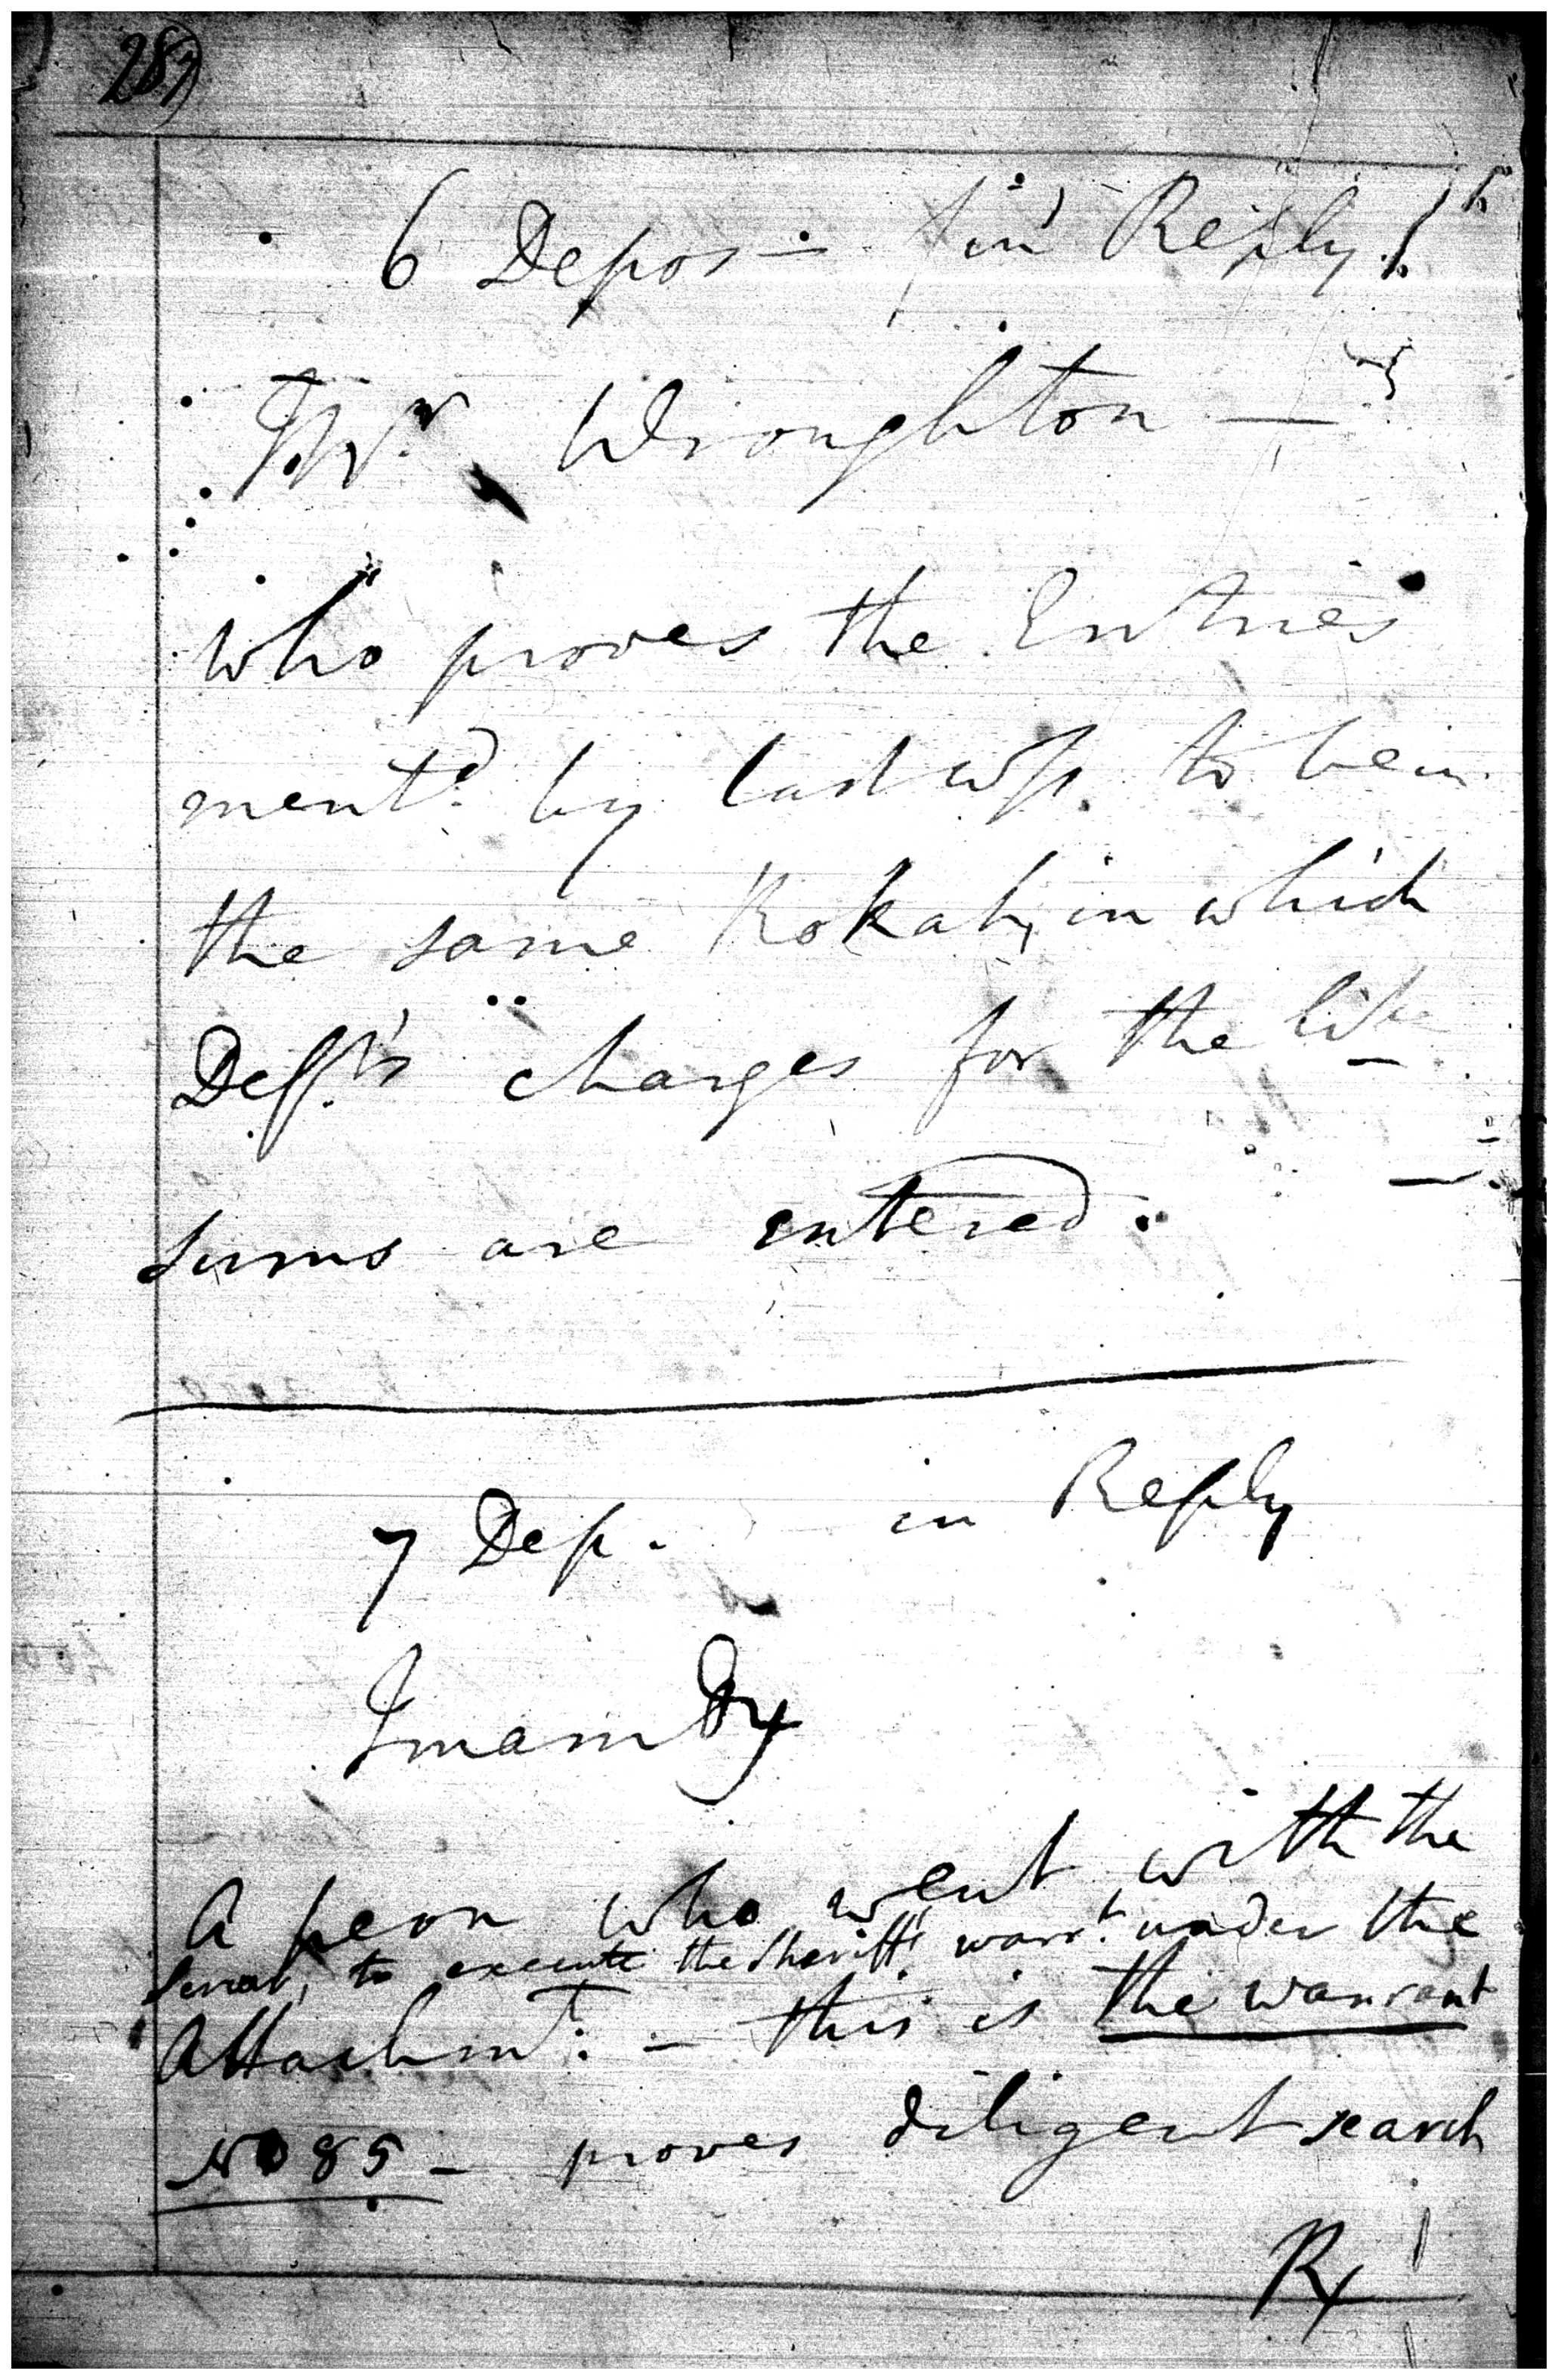 287
6 Depos - in Reply
Mr. Wroughton —
who proves the Entries
mentd. by last wss. to be in
the same Rokah, in which
Deft's charges for the like
sums are entered.
7 Dep. in Reply
Imam
A peon who went with the
to execute the Sheriff's warrt. under the
Attachmt. - this is the warrant
No 85 - proves diligent search